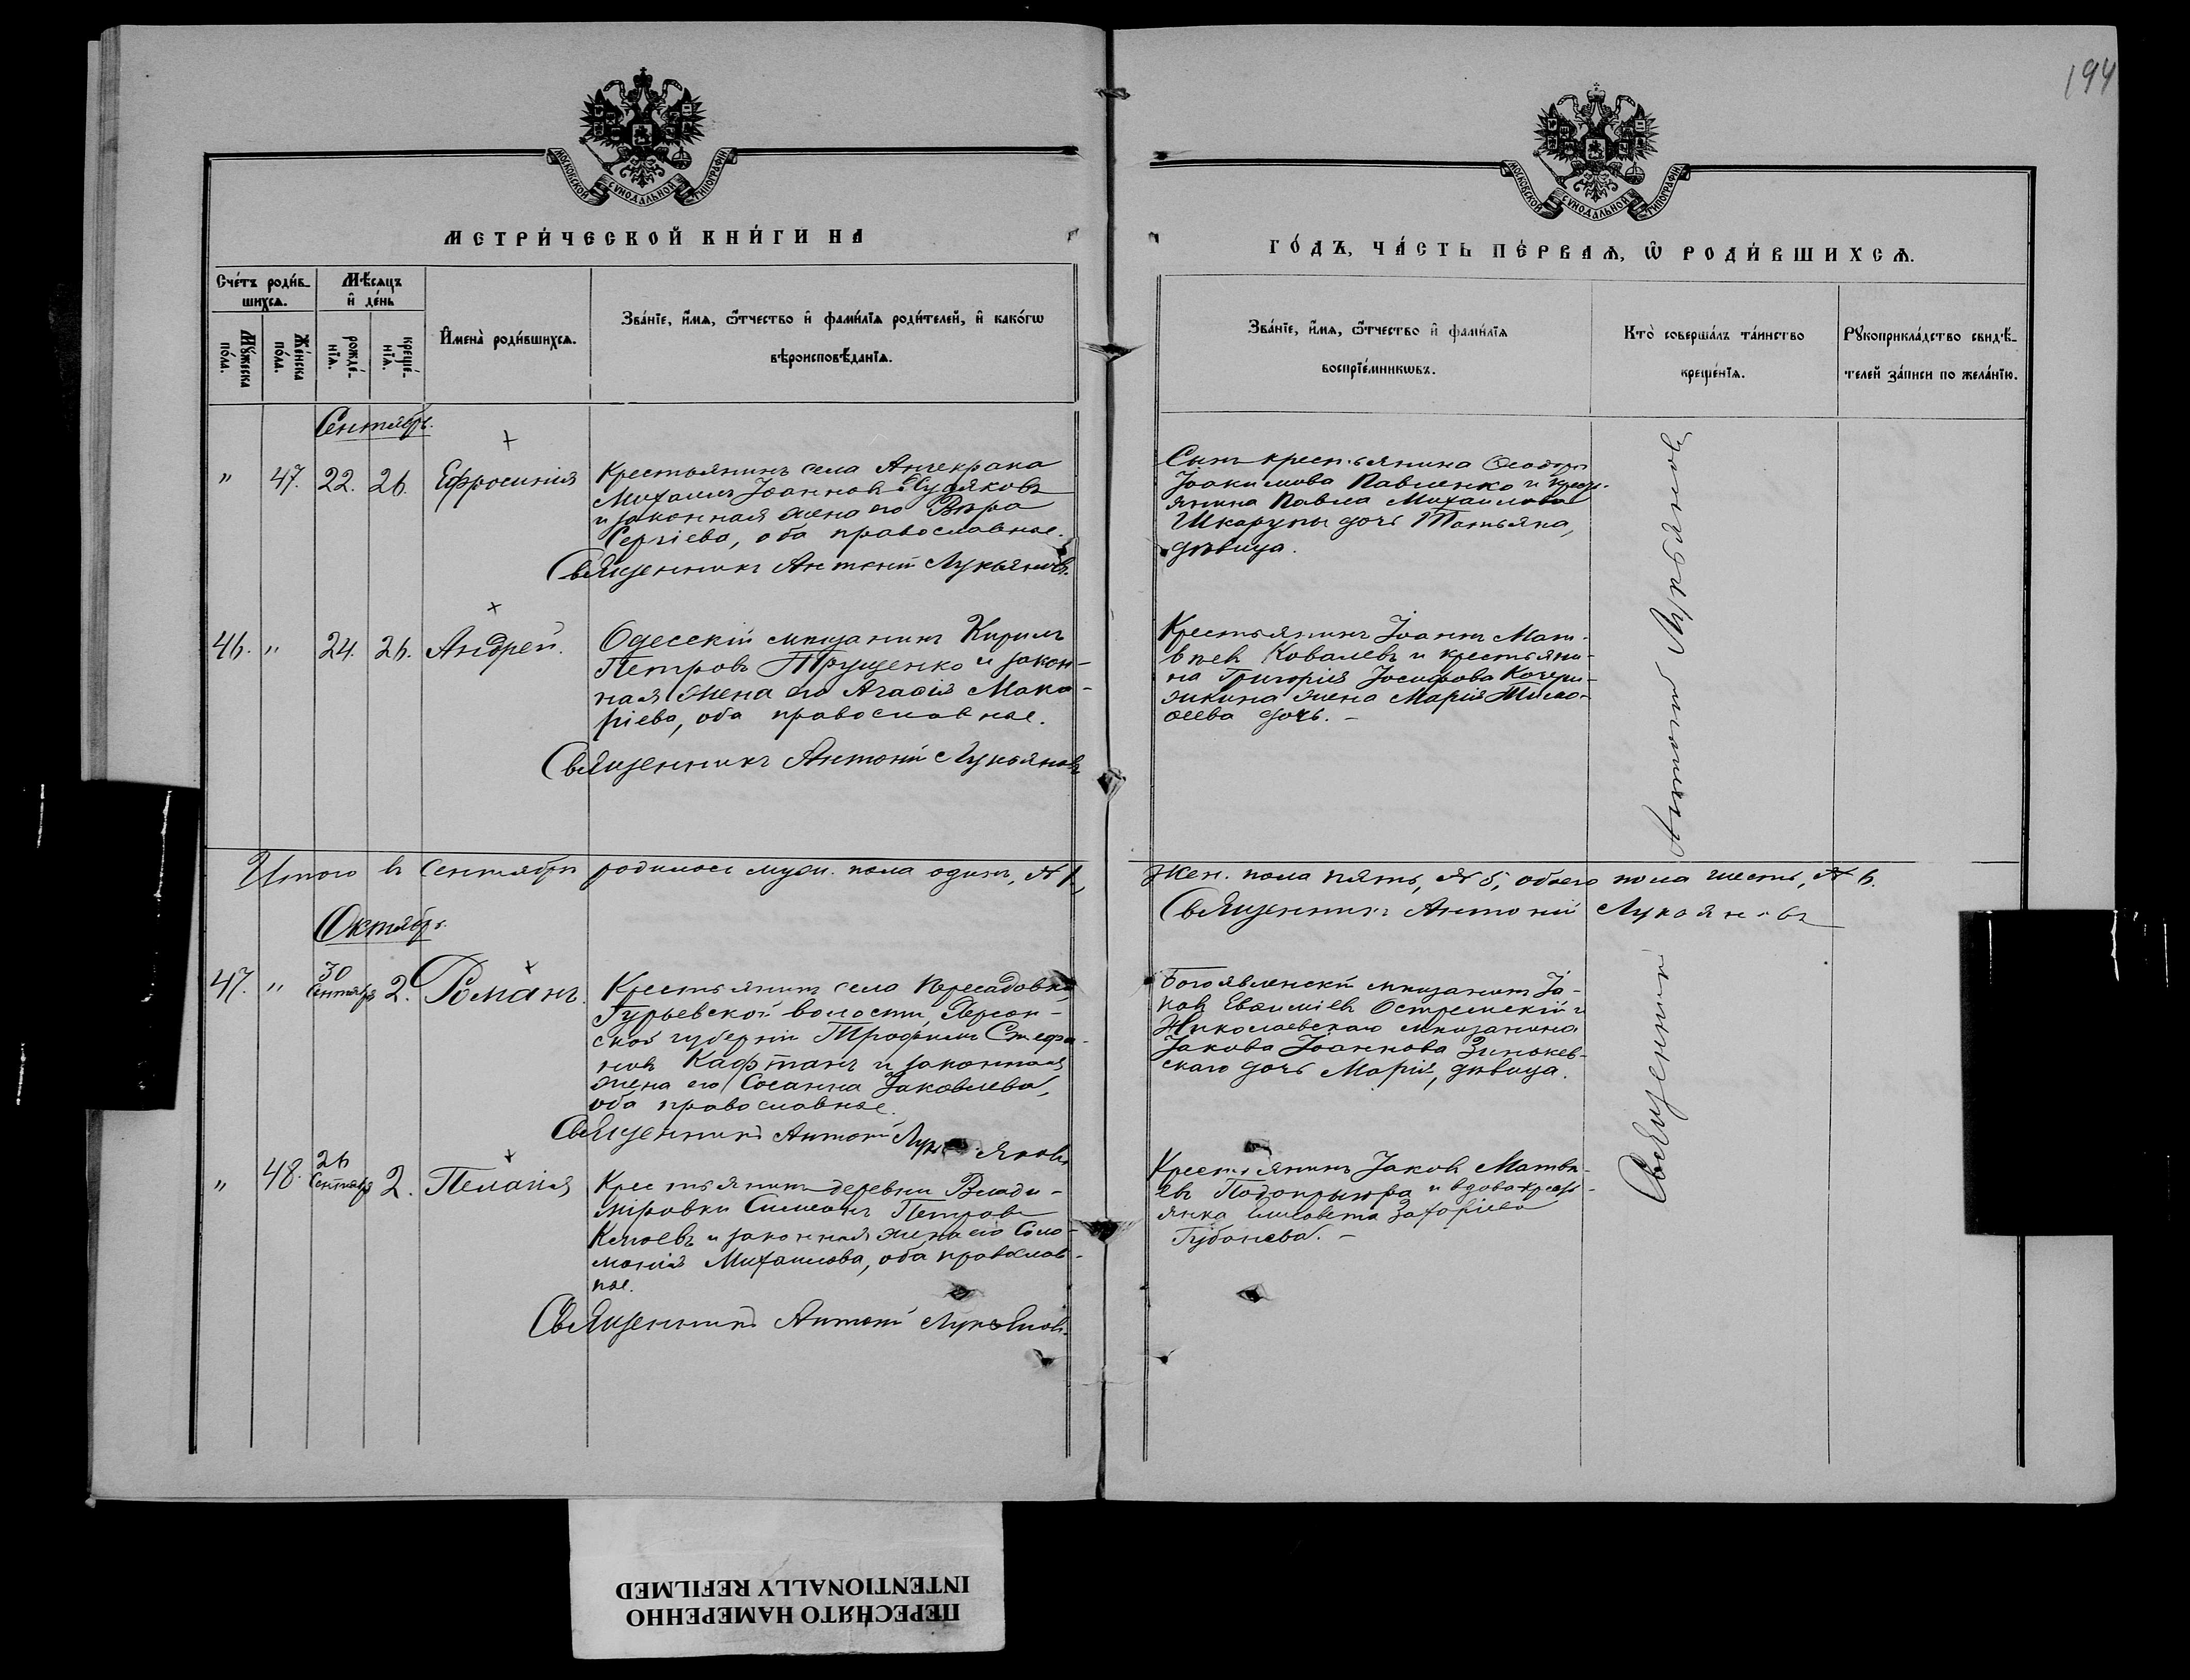 194
МОСКОВСКОЙ СѴНОДАЛЬНОЙ ТИПОГРАФІИ
МОСКОВСКОЙ СѴНОДАЛЬНОЙ ТИПОГРАФІИ
МЕТРИ́ЧЕСКОЙ КНИ́ГИ НА
ГО́ДЪ, ЧА́СТЬ ПЕ́РВАѦ, Ѡ҆ РОДИ́ВШИХСѦ.
Сче́тъ роди́в-
шихсѧ.
Мѣ́сѧцъ
и҆ де́нь
Мꙋ́жеска
по́ла.
Же́нска
по́ла.
рожде́-
нїѧ.
креще́-
нїѧ.
И҆мена̀ роди́вшихсѧ.
Зва́нїе, и҆́мѧ, ѻ҆́тчество и҆ фами́лїѧ роди́телей, и҆ како́гѡ
вѣроисповѣ́данїѧ.
Зва́нїе, и҆́мѧ, ѻ҆́тчество и҆ фами́лїѧ
воспрїе́мникѡвъ.
Кто̀ соверша́лъ та́инство
креще́нїѧ.
Рꙋкоприкла́дство свидѣ́-
телей за́писи по жела́нїю.
Сентябрь.
" 47. 22. 26. Ефросинія
Крестьянинъ села Анчекрака
Михаилъ Іоанновъ
и законная жена его Вѣра
Сергіева, оба православные.
Священникъ Антоній Лукьяновъ.
Сынъ крестьянина Ѳеодоръ
Іоакимова Павленко и крест-
янина Павла Михаилова
Шкарупы дочь Татьяна,
дѣвица.
46. " 24. 26. Андрей.
Одесскій мѣщанинъ Кирилъ
Петровъ Трущенко и закон-
ная жена его Агаѳія Мака-
ріева, оба православные.
Священникъ Антоній Лукьяновъ
Крестьянинъ Іоаннъ Мат-
вѣевъ Ковалевъ и крестьяни-
на Григорія Іосифова
жена Марія Тимо-
ѳеева дочь. –
Итого въ Сентябрѣ родилось муж. пола одинъ, № 1,
Жен. пола пять, № 5, обоего пола шесть, № 6.
Священникъ Антоній Лукьяновъ
Октябрь.
47. " 30 Сентября 2. Романъ.
Крестьянинъ села Пересадовки,
Гурьевской волости, Херсон-
ской губерніи Трофимъ Стефа-
новъ Кафтанъ и законная
жена его Сосанна Іаковлева,
оба православные.
Священникъ Антоній Лукьяновъ
Богоявленскій мѣщанинъ Іа-
ковъ Евѳиміевъ Остремскій и
Николаевскаго мѣщанина
Іакова Іоаннова Зинькев-
скаго дочь Марія, дѣвица.
" 48. 26 Сентября 2. Пелагія
Крестьянинъ деревни Влади-
міровки Симеонъ Петровъ
и законная жена его Соло-
монія Михаилова, оба православ-
ные.
Священникъ Антоній Лукьяновъ.
Крестьянинъ Іаковъ Матвѣ-
евъ Подопрыгора и вдова крест-
янка Елисавета Захаріева
Губанева. –
Священникъ Антоній Лукьяновъ
ПЕРЕСНЯТО НАМЕРЕННО
INTENTIONALLY REFILMED